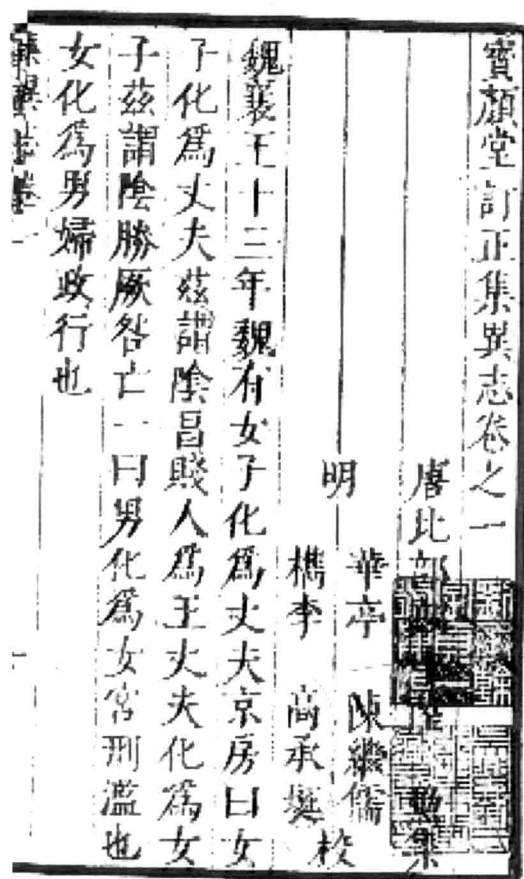 寶顏堂訂正集異志卷之一
唐比部
集
明
華亭 陳繼儒
檇李 高承埏
校
魏襄王十三年魏有女子化爲丈夫京房曰女
子化爲丈夫茲謂陰昌賤人爲王丈夫化爲女
子茲謂陰勝厥咎亡一曰男化爲女宮刑濫也
女化爲男婦政行也
集異志卷一
一